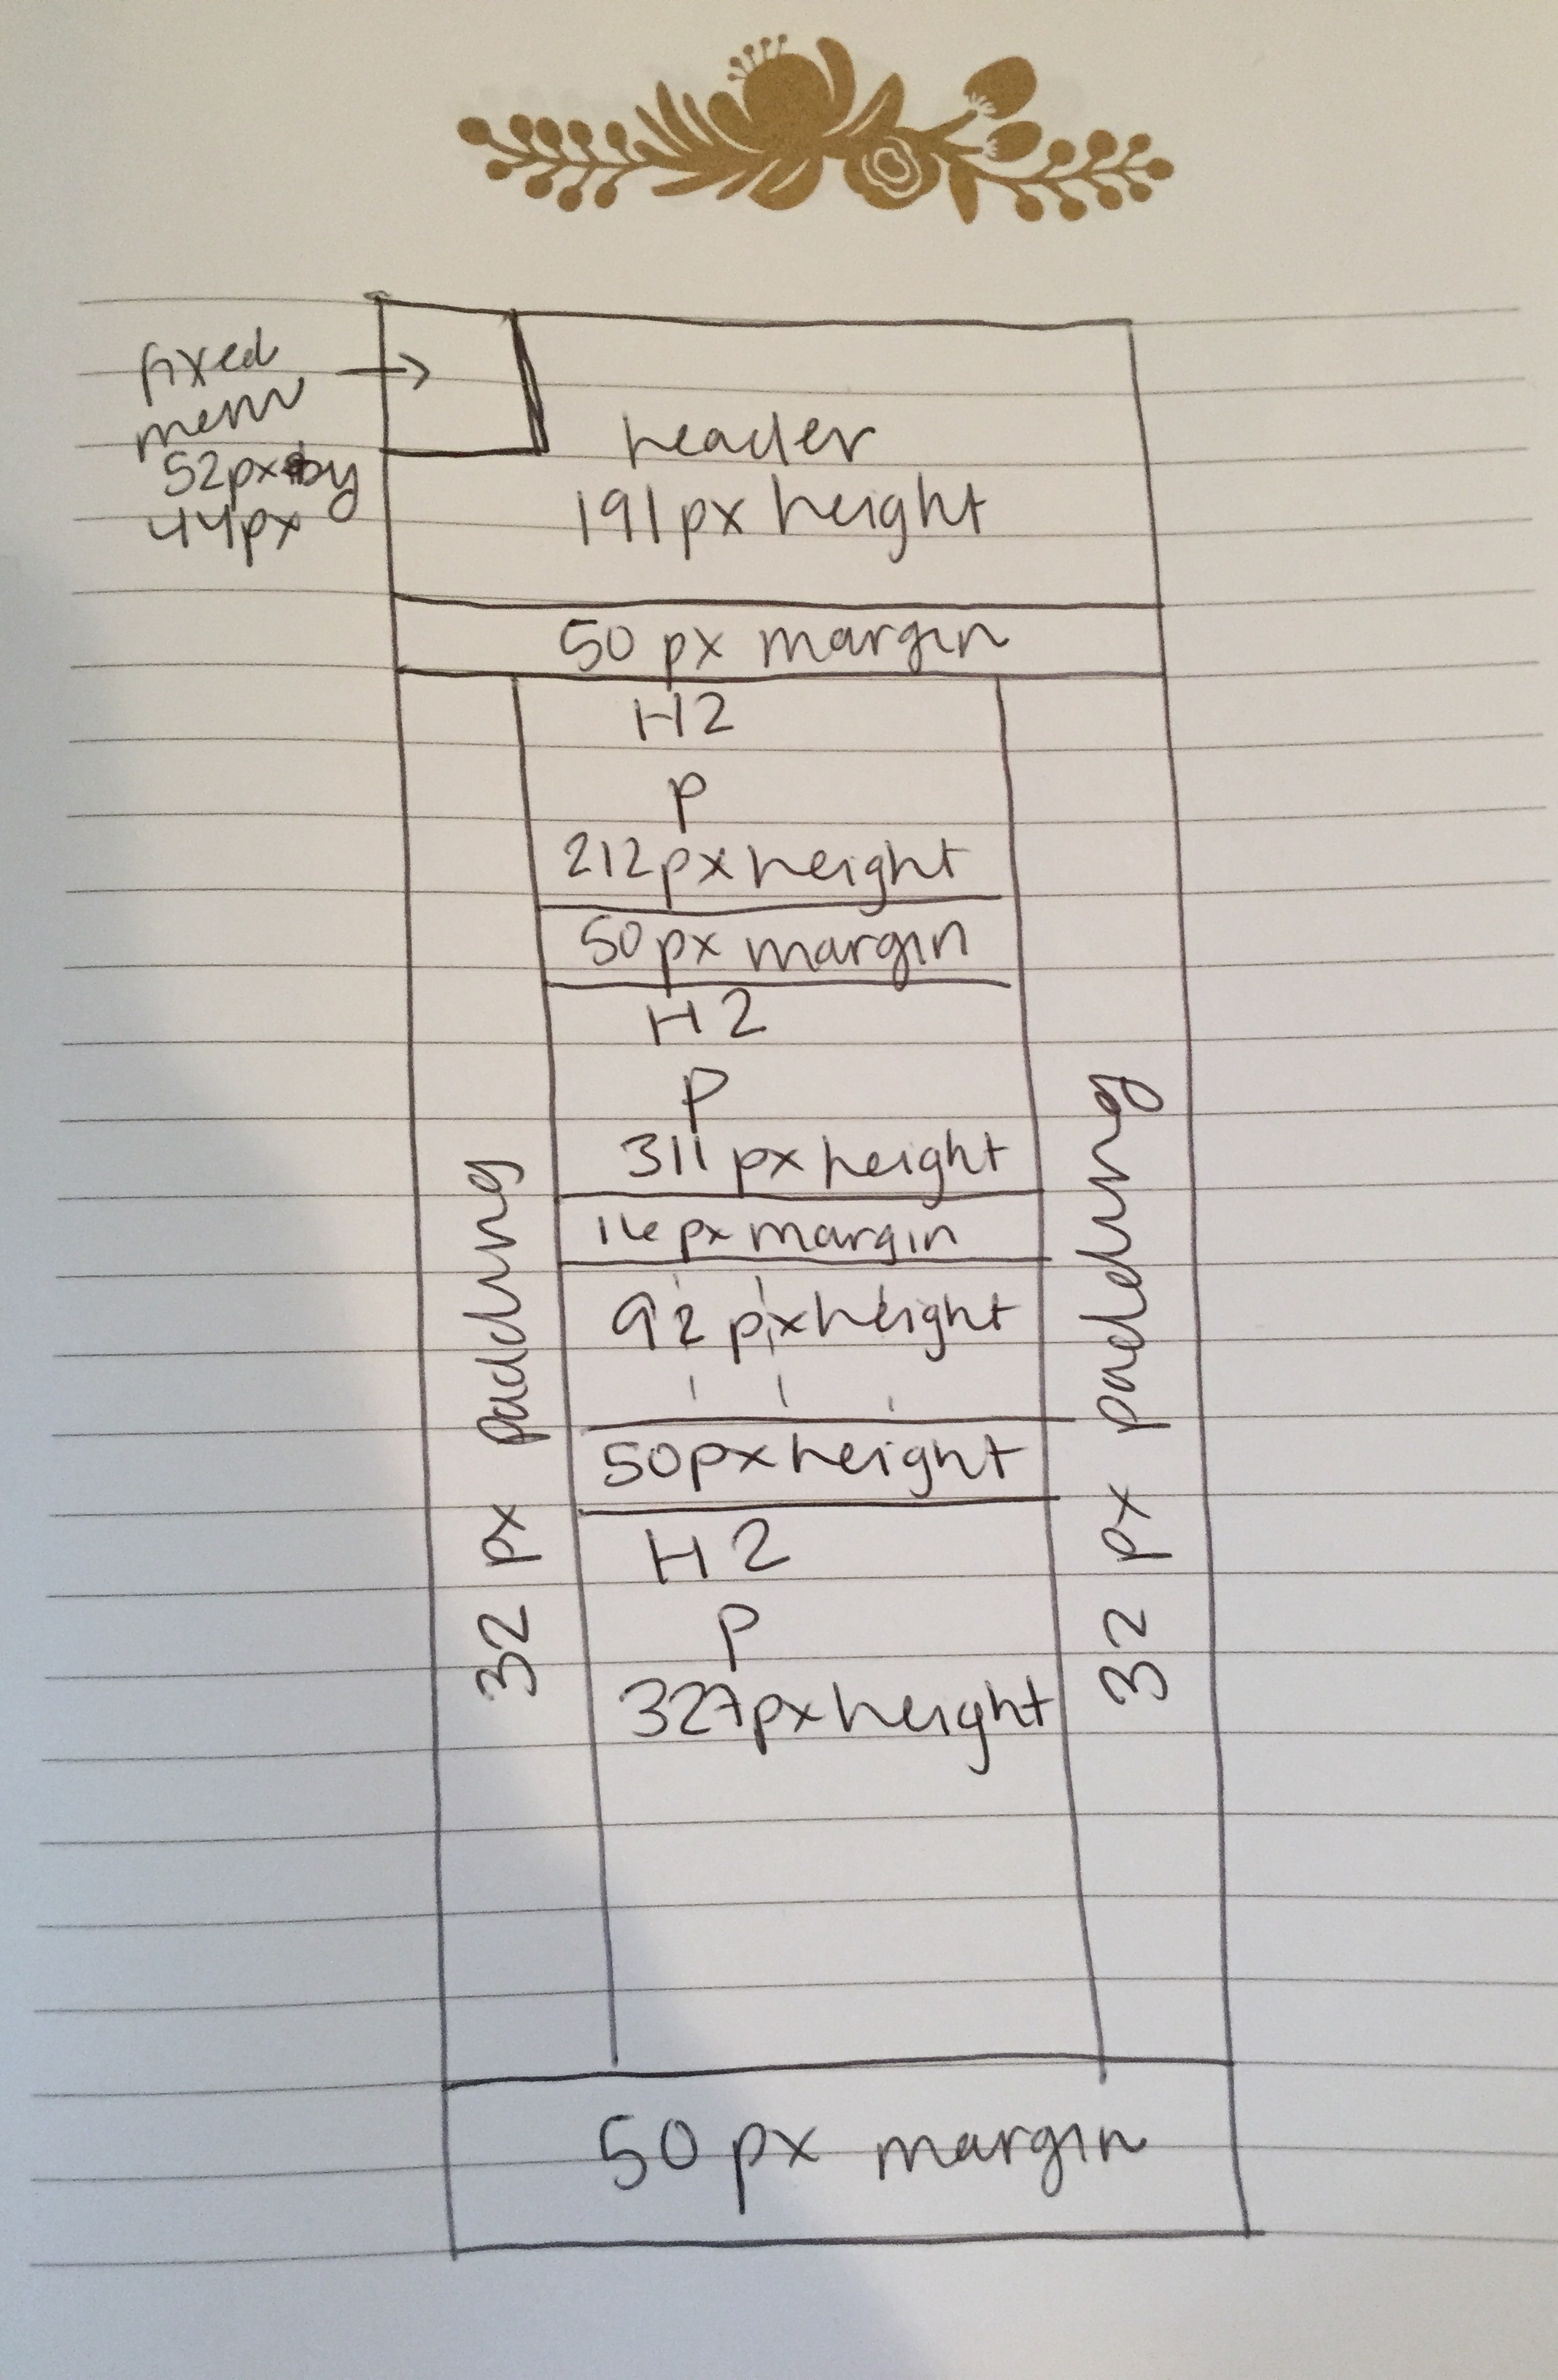 fixed
menu
52px by
44px
header
191px height
50 px margin
H2
P
212px height
50px margin
H2
P
311 px height
16 px margin
92 px height
50px height
H2
P
327px height
32 px padding
32 px padding
50 px margin